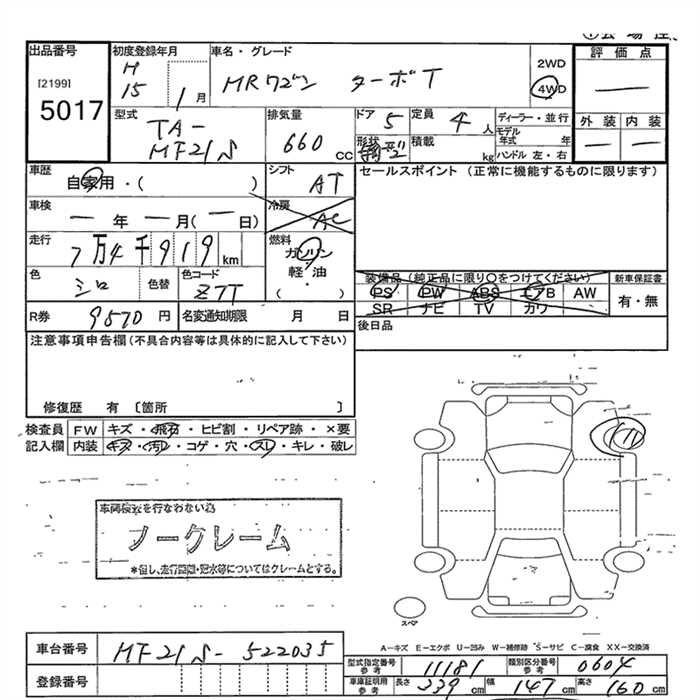 出品番号
[2199]
5017
初度登録年月
H
15 1月
車名・グレード
MRワゴン ターボT
2WD
4WD
評価点
—
外装 内装
— —
型式
TA-
MF21S
排気量
660 CC
ドア 5
定員 4 人
形状
積載 kg
ディーラー・並行
モデル年式 年
ハンドル 左・右
車歴
自家用・( )
シフト
AT
セールスポイント (正常に機能するものに限ります)
車検
— 年 — 月(— 日)
冷房
AC
走行
7万4千919km
燃料
ガソリン
軽・油
・( )
色
シロ
色替
色コード
Z7T
装備品(純正品に限り○をつけてください)
PS PW ABS エアB AW
SR ナビ TV カワ
新車保証書
有・無
R券 9570円
名変通知期限 月 日
後日品
注意事項申告欄(不具合内容等は具体的に記入して下さい)
修復歴 有 〔箇所 〕
検査員 FW キズ・飛石・ヒビ割・リペア跡・×要
記入欄 内装 キズ・汚レ・コゲ・穴・スレ・キレ・破レ
車両検査を行なわない為
ノークレーム
*但し、走行距離・冠水等についてはクレームとする。
スペア
A-キズ E-エクボ U-凹み W-補修跡 S-サビ C-腐食 XX-交換済
車台番号 MF21S-522035
型式指定番号 参考 11181
類別区分番号 参考 0604
登録番号
車庫証明用 参考 長さ 339cm 幅 147cm 高さ 160cm